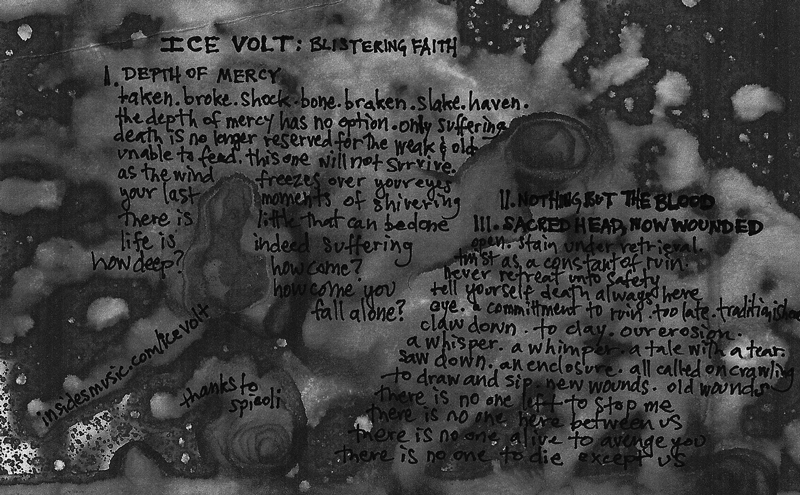 ICE VOLT: BLISTERING FAITH
I. DEPTH OF MERCY
taken. broke. shock. bone. braken. slake. haven.
the depth of mercy has no option. only suffering
death is no longer reserved for the weak & old
unable to fend. this one will not survive.
as the wind freezes over your eyes
your last moments of shivering
there is little that can be done
life is indeed suffering
how deep? how come?
how come you
fall alone?
II. NOTHING BUT THE BLOOD
III. SACRED HEAD, NOW WOUNDED
open. stain under retrieval.
twist as a constant of ruin.
never retreat unto safety
tell yourself death always here
eye. a commitment to ruin. too late.
claw down. to clay. our erosion.
a whisper. a whimper. a tale with a tear.
saw down. an enclosure. all called on crawling
to draw and sip. new wounds. old wounds
there is no one left to stop me
there is no one here between us
there is no one alive to avenge you
there is no one to die except us
insidesmusic.com/icevolt
thanks to
spicoli